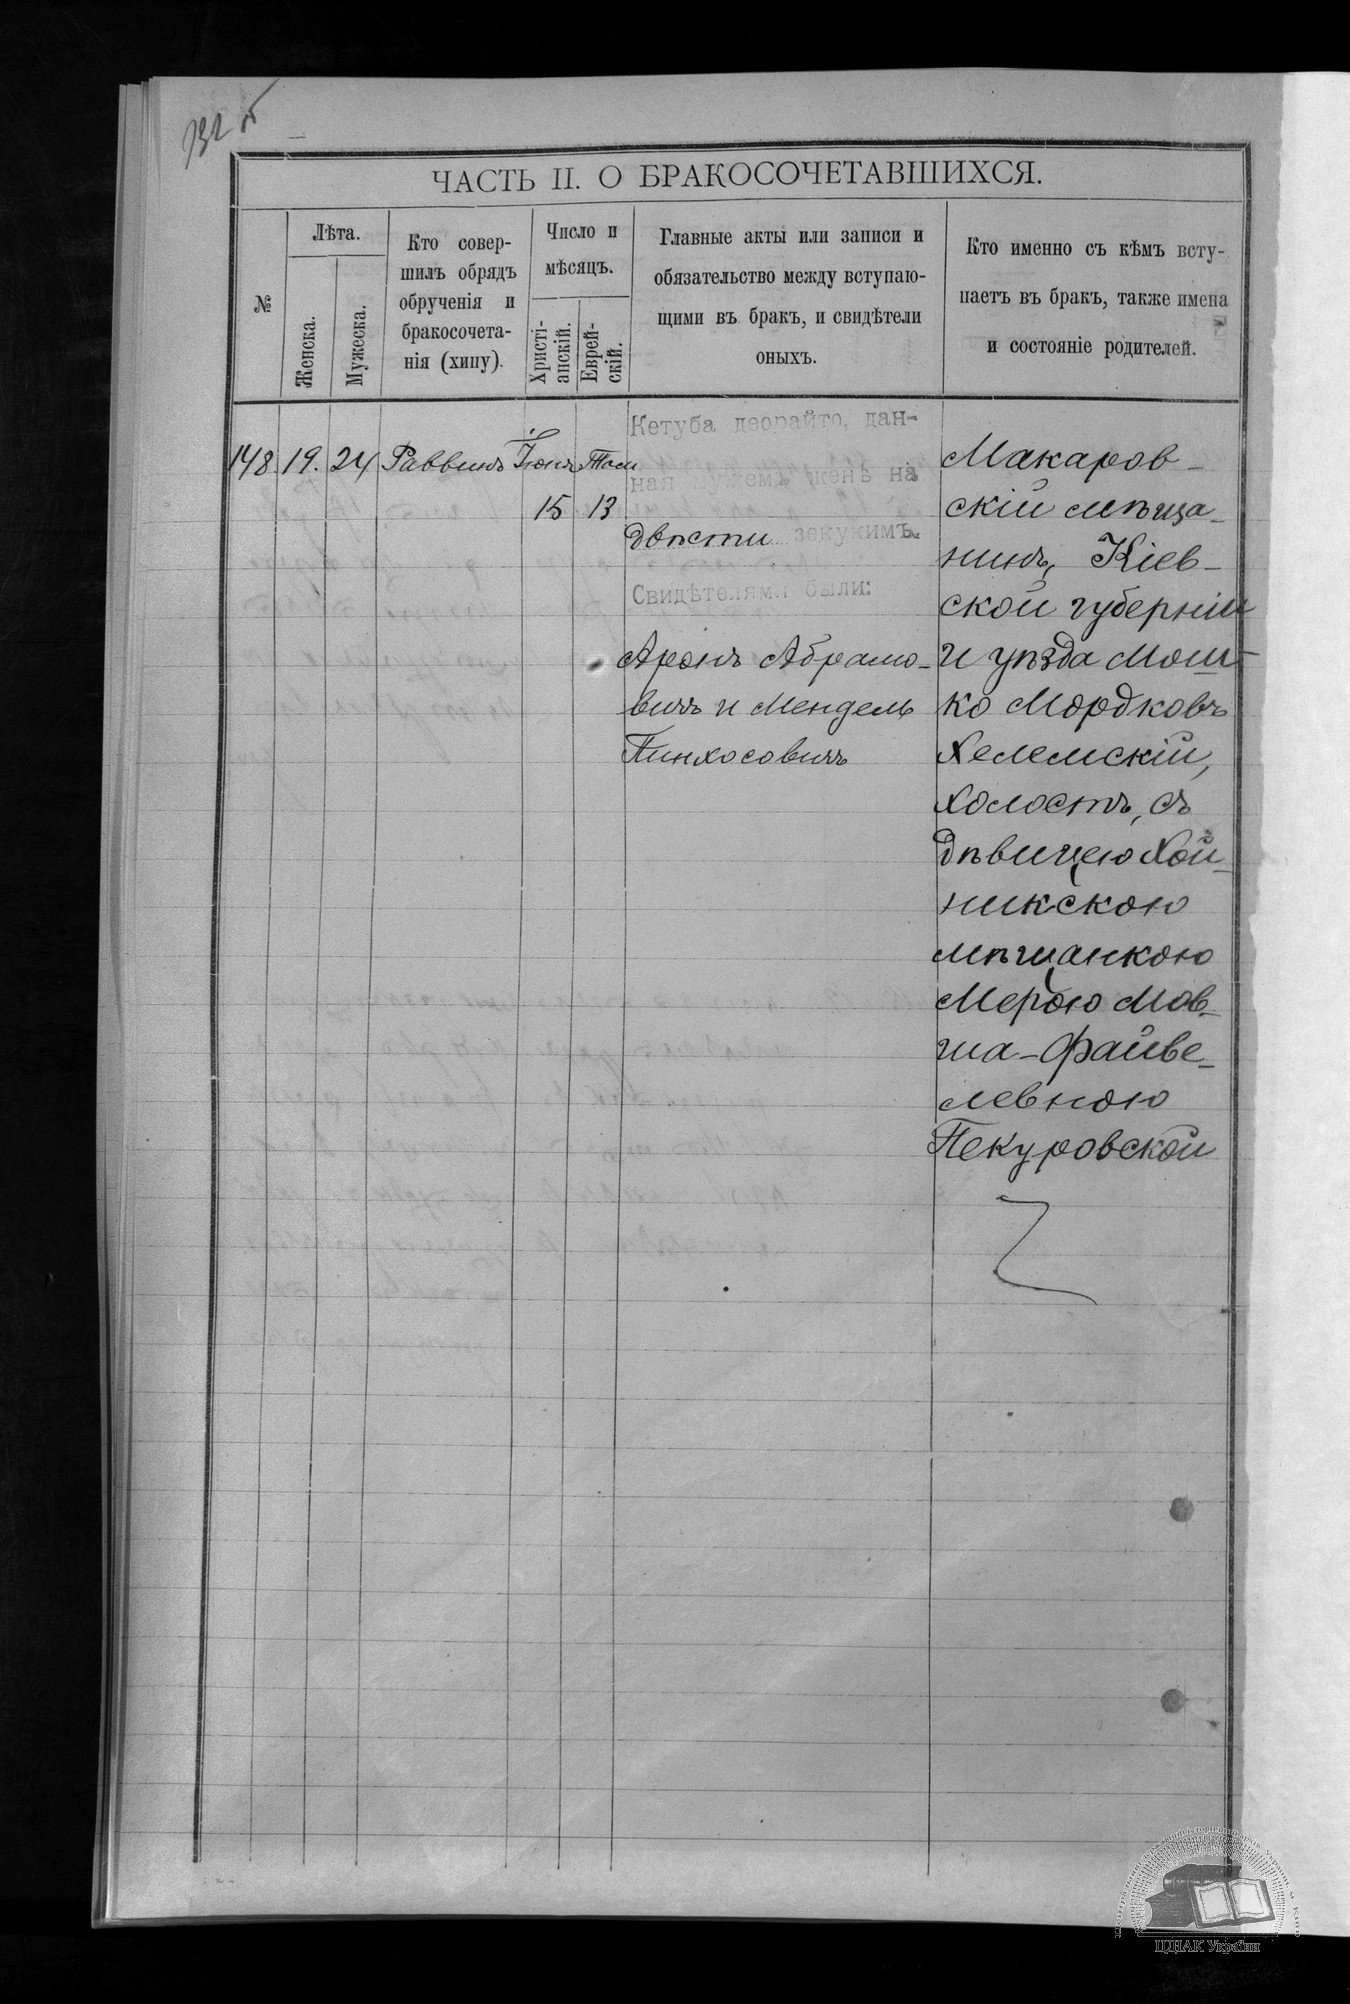 ЧАСТЬ II. О БРАКОСОЧЕТАВШИХСЯ.
№
Лѣта.
Женска.
Мужеска.
Кто совер-
шилъ обрядъ
обрученія и
бракосочета-
нія (хипу).
Число и
мѣсяцъ.
Христі-
анскій.
Еврей-
скій.
Главные акты или записи и
обязательство между вступаю-
щими въ бракъ, и свидѣтели
оныхъ.
Кто именно съ кѣмъ всту-
паетъ въ бракъ, также имена
и состояніе родителей.
148 19. 24 Раввинъ Іюня
15 13
Кетуба деорайто, дан-
ная мужемъ женѣ на
двѣсти зекукимъ.
Свидѣтелями были:
Аронъ Абрамо-
вичъ и Мендель
Пинхосовичъ
Макаров-
скій мѣща-
нинъ, Кіев-
ской губерніи
и уѣзда Мош-
ко Мордковъ
Хелемскій,
холостъ, съ
дѣвицею Хой-
никскою
мѣщанкою
Мерою Мов-
ша-Файве-
левною
Пекуровской
ЦДІАК України